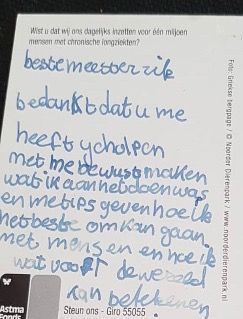 Wist u dat wij ons dagelijks inzetten voor één miljoen
mensen met chronische longziekten?
beste meester rik
bedankt dat u me
heeft geholpen
met me bewust maken
wat ik aan het doen was
en me tips geven hoe ik
het beste om kan gaan
met mensen en hoe ik
wat voor de wereld
kan betekenen
Astma
Fonds
Steun ons - Giro 55055
Foto: Griekse bergpage / © Noorder Dierenpark / www.noorderdierenpark.nl